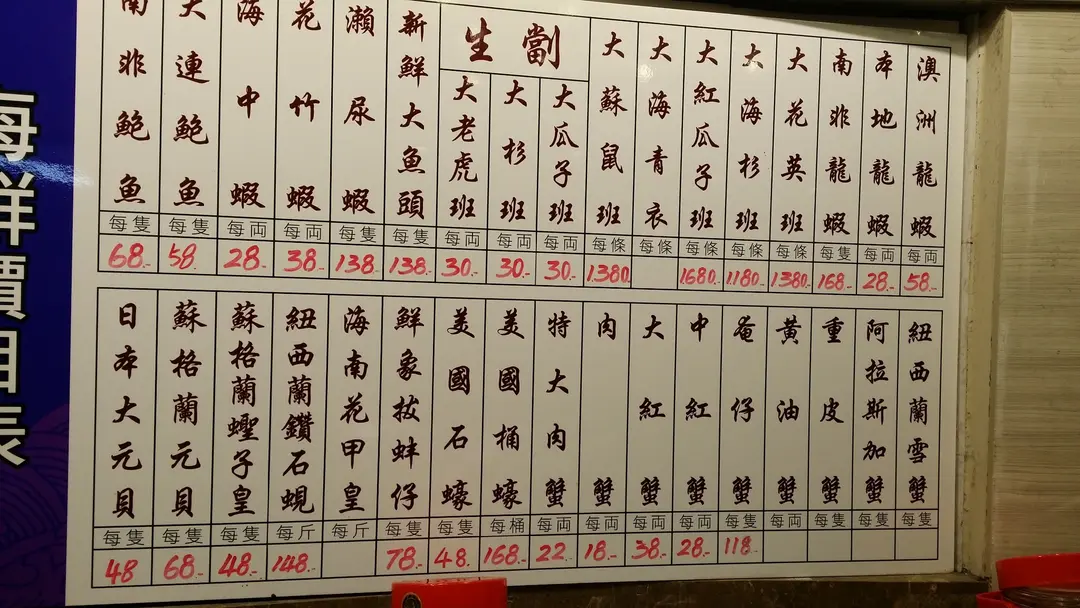 澳洲龍蝦
每両
58.-
本地龍蝦
每両
28.-
南非龍蝦
每隻
168.-
大花英班
每條
1380.-
大海杉班
每條
1180.-
大紅瓜子班
每條
1680.-
大海青衣
每條
大蘇鼠班
每條
1380.
生劏
大瓜子班
每両
30.-
大杉班
每両
30.-
大老虎班
每両
30.-
新鮮大魚頭
每隻
138.-
瀨尿蝦
每隻
138.-
花竹蝦
每両
38.-
海中蝦
每両
28.-
大連鮑魚
每隻
58.-
南非鮑魚
每隻
68.-
紐西蘭雪蟹
每隻
阿拉斯加蟹
每隻
重皮蟹
每隻
黃油蟹
每両
奄仔蟹
每隻
118.-
中紅蟹
每両
28.-
大紅蟹
每両
38.-
肉蟹
每両
18.-
特大肉蟹
每両
22.-
美國桶蠔
每桶
168.-
美國石蠔
每隻
48.-
鮮象拔蚌仔
每隻
78.-
海南花甲皇
每斤
紐西蘭鑽石蜆
每斤
148.-
蘇格蘭蟶子皇
每隻
48.-
蘇格蘭元貝
每隻
68.-
日本大元貝
每隻
48
海鮮價目表